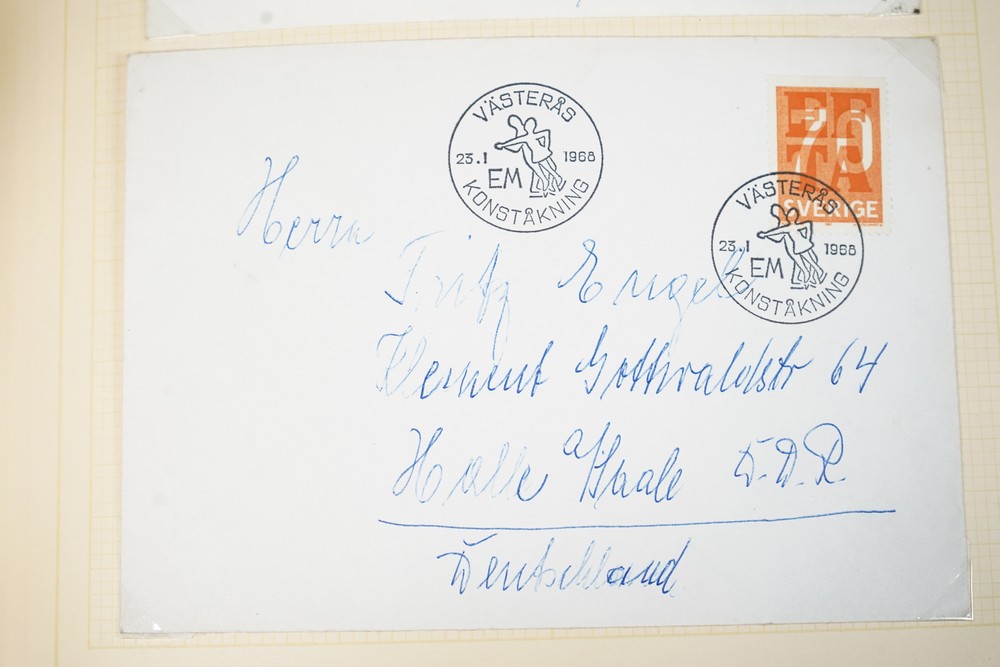 VÄSTERÅS
23.1 1968
EM
KONSTÅKNING
EFTA
70
SVERIGE
VÄSTERÅS
23.1 1968
EM
KONSTÅKNING
Herrn
Fritz Engel
Klement Gottwaldstr 64
Halle a/Saale D.D.R.
Deutschland